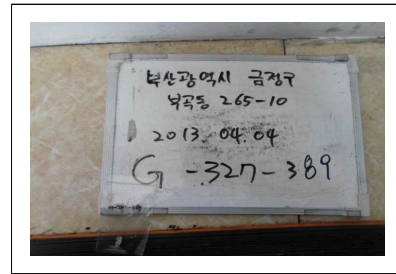 부산광역시 금정구
부곡동 265-10
2013. 04. 04
G -327-389